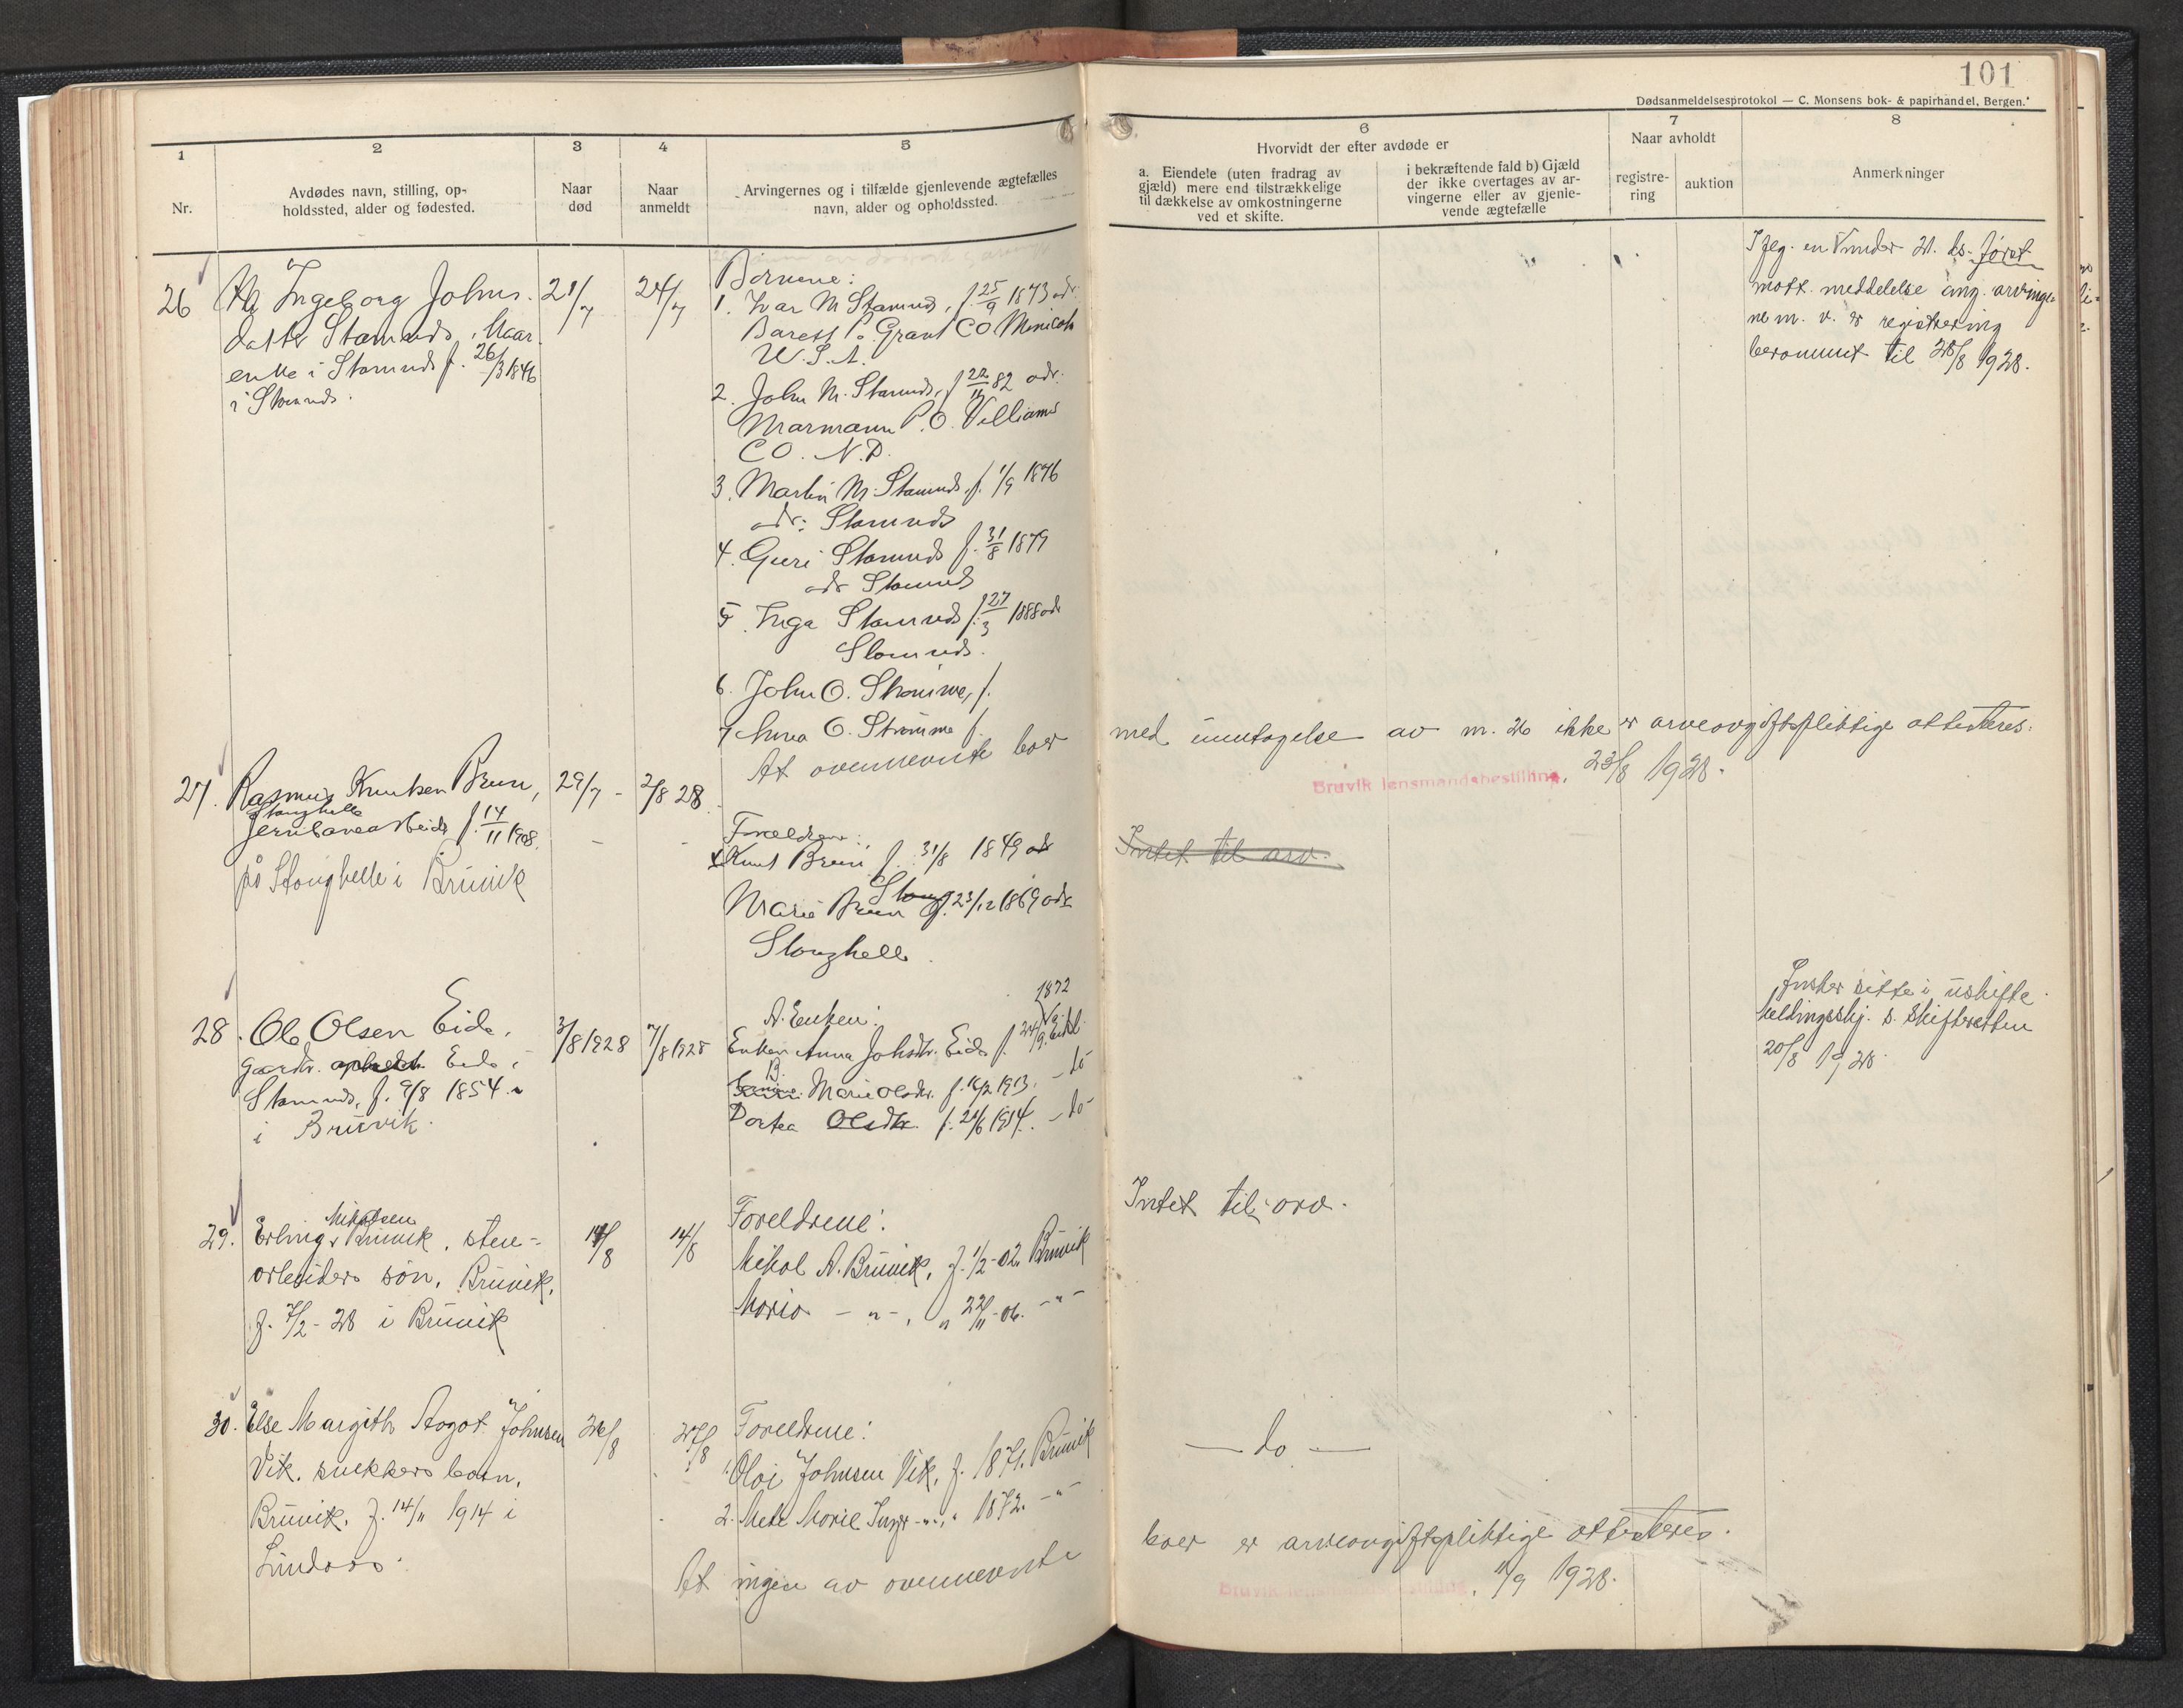 101
Dødsanmeldelsesprotokol — C. Monsens bok- & papirhandel, Bergen.
1
Nr.
2
Avdødes navn, stilling, op-
holdssted, alder og fødested.
3
Naar
død
4
Naar
anmeldt
5
Arvingernes og i tilfælde gjenlevende ægtefælles
navn, alder og opholdssted.
6
Hvorvidt der efter avdøde er
a. Eiendele (uten fradrag av
gjæld) mere end tilstrækkelige
til dækkelse av omkostningerne
ved et skifte.
i bekræftende fald b) Gjæld
der ikke overtages av ar-
vingerne eller av gjenle-
vende ægtefælle
7
Naar avholdt
registre-
ring
auktion
8
Anmerkninger
26
Ingeborg Johns-
datter Stamnes,
enke i Stamnes f. 26/3 1846
i Stamnes.
21/7
24/7
Børnene:
1. Ivar M Stamnes, f. 25/9 1873 adr
Barett P.o. Grant CO
U.S.A.
2. John M. Stamnes, f 22/11 82 adr:
Marmann P.O. Villiams
CO. N.D.
3. Martin M. Stamnes, f. 1/9 1876
adr: Stamnes
4. Guri Stamnes f. 31/8 1879
adr Stamnes
5. Inga Stamnes f. 27/3 1888 adr
Stamnes.
6. John O. Stamnes, f.
7 Anna O. f.
At ovennevnte boer
med unntagelse av nr. 26 ikke er arveavgiftspliktige attesteres:
Bruvik lensmandsbestilling, 23/8 1928.
mott. meddelelse ang. arvinge-
ne m. v. er registrering
berammet til 28/8 1928.
27.
Rasmus Knutsen Brun,
Stanghelle
jernbanearbeider f. 14/11 1908.
på Stanghelle i Bruvik
29/7 -
2/8 28.
Foreldre:
Knut Brun f. 31/8 1849 adr
Stang
Marie Brun f. 23/12 1869 adr
Stanghelle.
Intet til arv.
28.
Ole Olsen Eide,
gaardbr. Eide i
Stamnes, f. 9/8 1854 
i Bruvik.
3/8 1928
7/8 1928
A. Enken:
1872
Enken Anna Johsdtr. Eide f. 24/9. Eide
B.
Marie Olsdtr. f. 16/2 1913. - do
Dortea Olsdtr. f. 21/6 1914. - do -
Ønsker sitte i uskifte.
Meldingsskj. s. skifteretten
20/8 1928.
29.
Mikalsen
Erling Bruvik, sten-
arbeiders søn, Bruvik,
f. 7/2 - 28 i Bruvik
14/8
Foreldrene:
Mikal A. Bruvik, f. 1/2 - 02. Bruvik
Maria - " -, " 22/11 - 06. - " -
Intet til arv.
30.
Else Margith Aagot Johnsen
Vik. snekkers barn,
Bruvik. f. 14/11 1914 i
Lindaas.
26/8
27/8
Foreldrene:
1. Olai Johnsen Vik, f. 1871. Bruvik
2. Mete Marie - " -, " 1872. - " -
— do —
At ingen av ovennevnte
boer er arveavgiftspliktige attesteres.
Bruvik lensmandsbestilling, 11/9 1928.